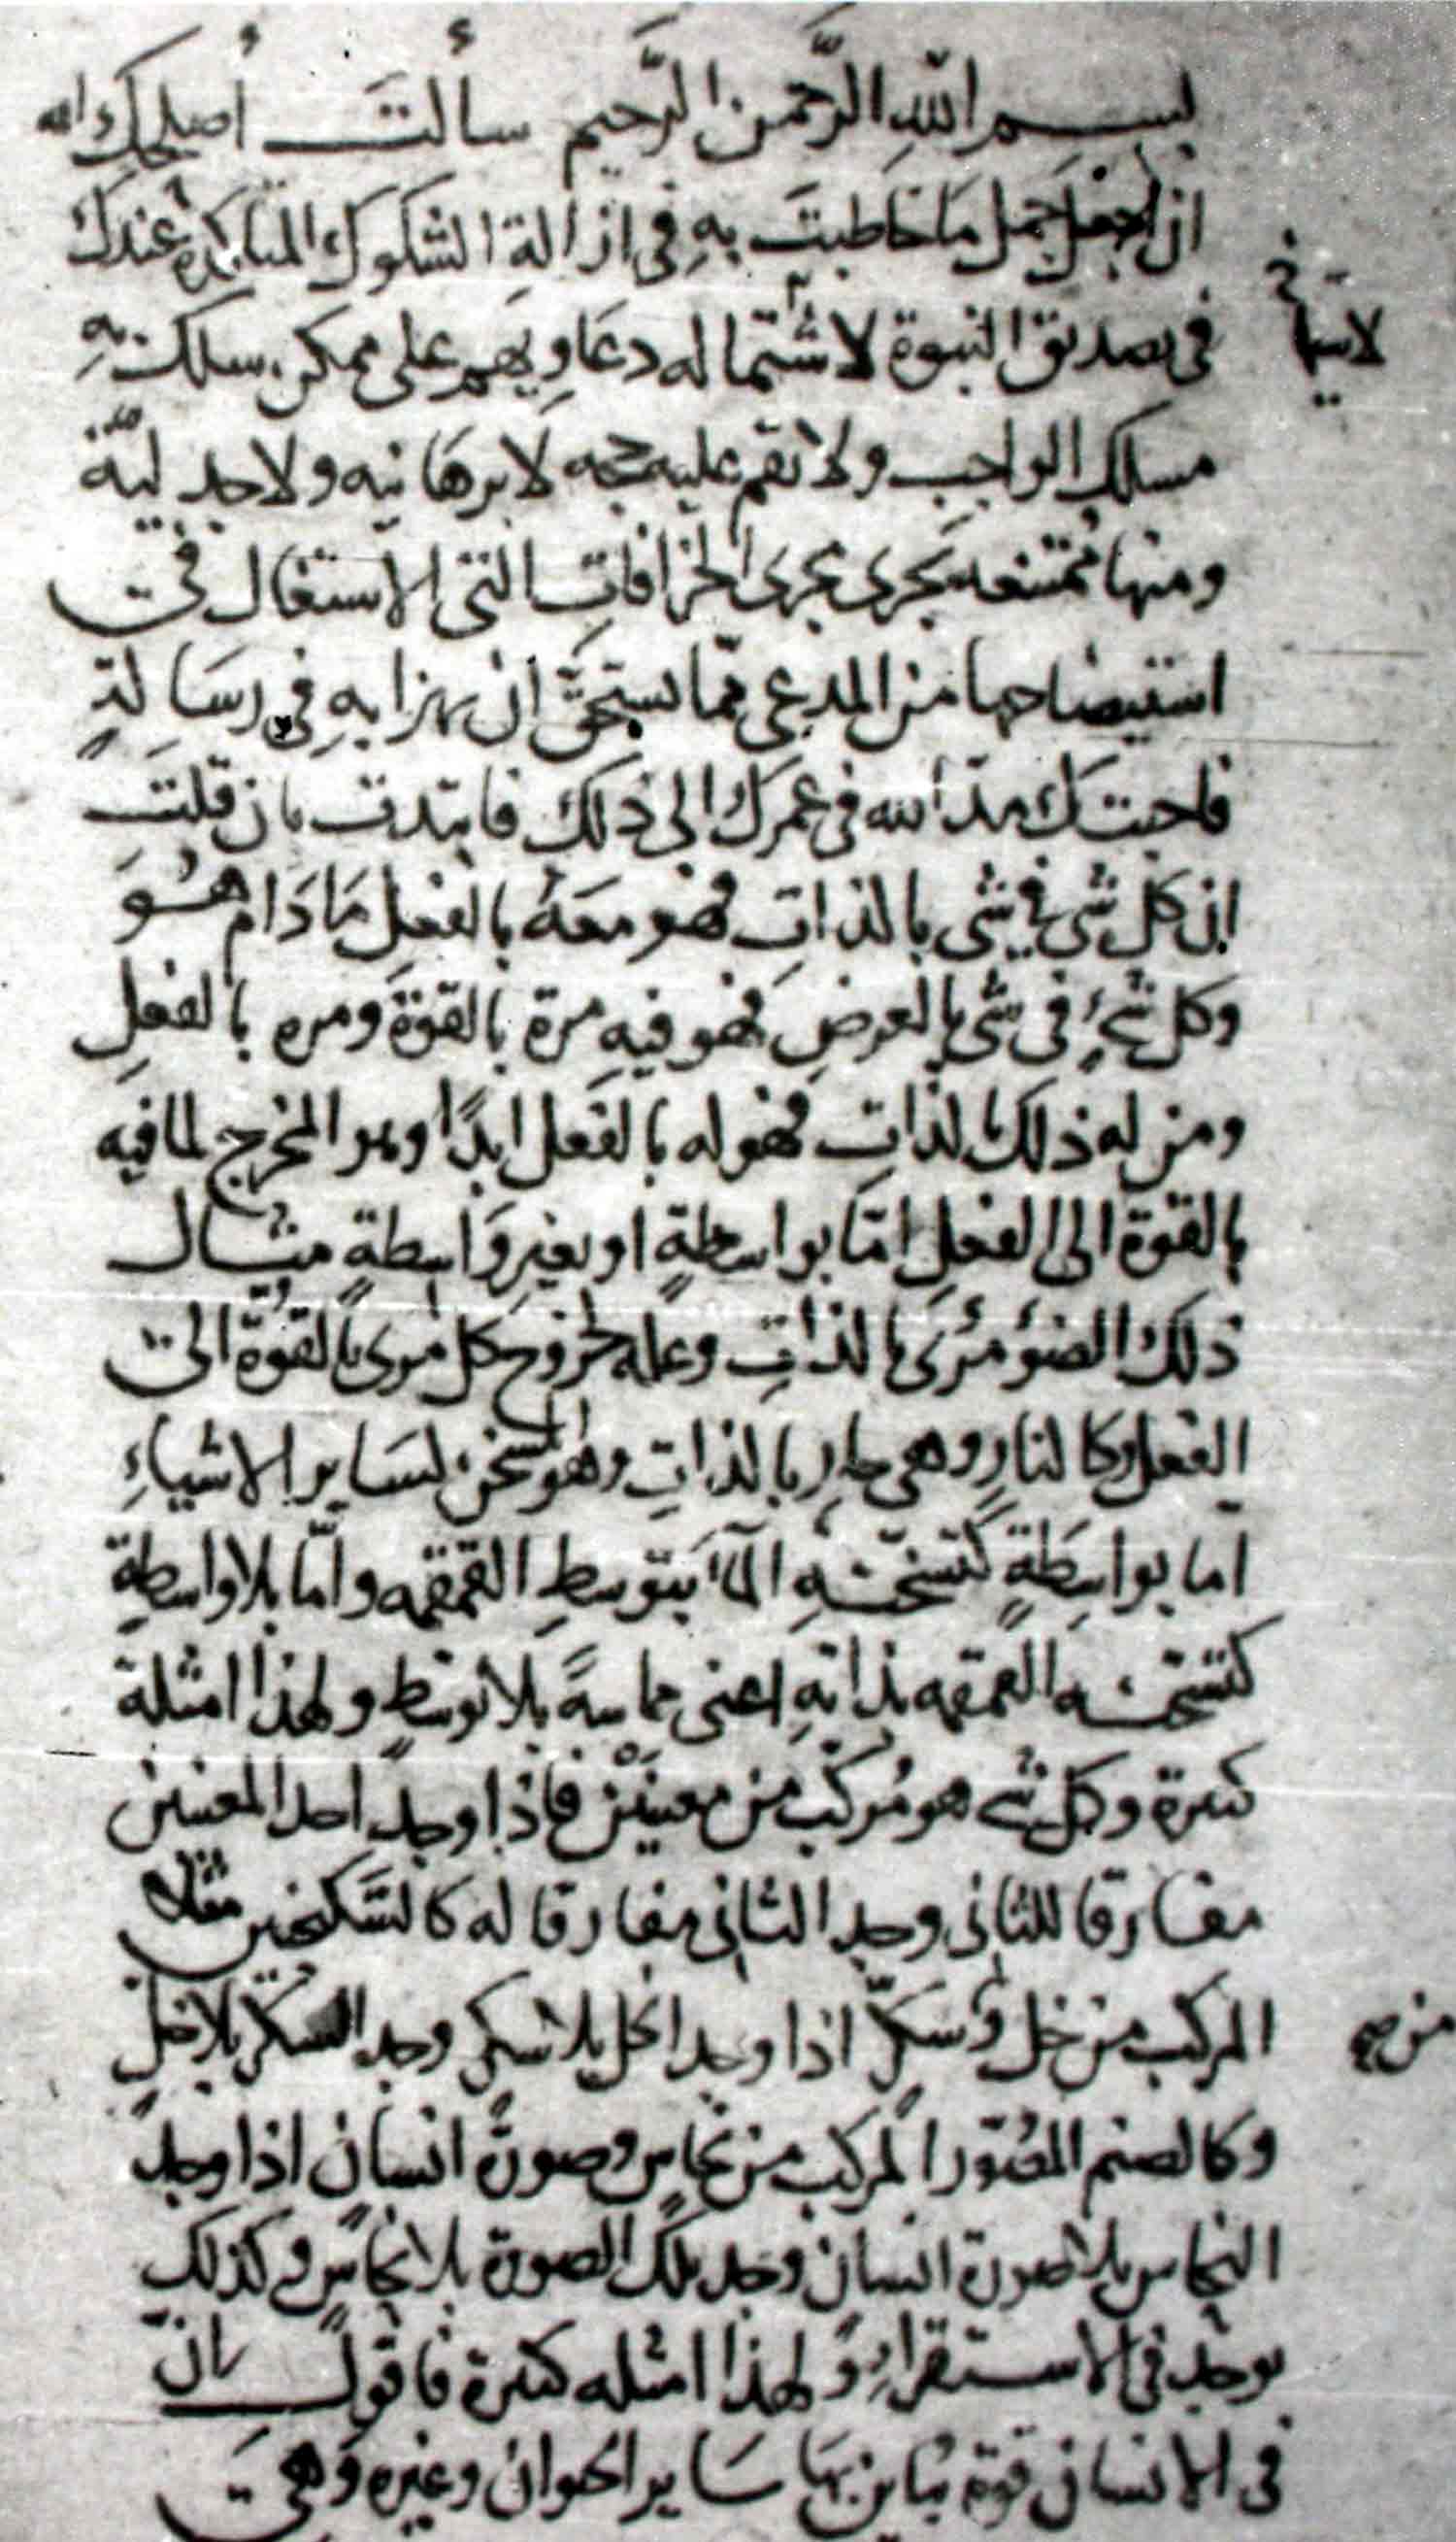 بسم الله الرَّحمن الرَّحيم سألتَ أصلحك الله
ان اجعل جمل مَا خاطبتَ بهِ فِى ازالةِ الشكوك المتاكدة عندك
لاسيما
فى تصديق النبوة لاشتمالِ دعَاوِيهم على ممكن سلك بهِ
مسلك الواجب ولم تقم عليه حجه لا برهانيه ولا جدليّة
ومنها مُمتنعه تَجرى مجرى الخرافاتِ التى الاشتغال فى
استيضاحها من المدعى ممّا يستحقَّ ان يهزا بهِ فِى رسَالةٍ
فاجبتك مدّ الله فى عمرك الى ذلك فابتدت بان قلتَ
ان كل شى فى شى بالذاتِ فهو معَهُ بالفعلِ مَا دَام هُوَ
وكل شئٍ فى شى بالعرضِ فهو فيهِ مرة بالقوّة ومره بالفعلِ
ومن له ذلك بالذاتِ فهو له بالفعل ابدًا وهو المخرج لما فيه
بالقوّة الى الفعلِ امّا بواسطةٍ او بغيرِ وَاسطةٍ مثال
ذلك الضوُ مرئى بالذاتِ وعله لخروج كل مرى بالقوّة الى
الفعل وكالنارِ وهى حار بالذاتِ وهو المسخن لسَاير الاشياءِ
اما بواسِطَةٍ كتسخينهِ المآء بتوسطِ القمقمه وامّا بلا واسطةِ
كتسخينه القمقمه بذاتهِ اعنى مماسةً بلا توسّطٍ ولهذا امثلة
كثيرة وكل شى هو مُركّب من معنيَيْن فاذا وجد احد المعنيين
مفارقا للثانى وجد الثانى مفارقا له كالسّكنجبين مثلا
المركب من خل وسَكرٍّ اذا وجد الخل بلا سكرٍ وجد السكّر بلا خلٍ
من صح
وكالصنم المصّور المركب من نحاسٍ وصورةِ انسان اذا وجد
النحاس بلا صورة انسان وجد تلك الصورة بلا نحاسٍ وكذلك
يوجد فى الاستقراءِ ولهذا امثله كثيرة فاقول بانّ
فى الانسان قوة يُباين بهَا سَاير الحيوان وغيره وَهىَ